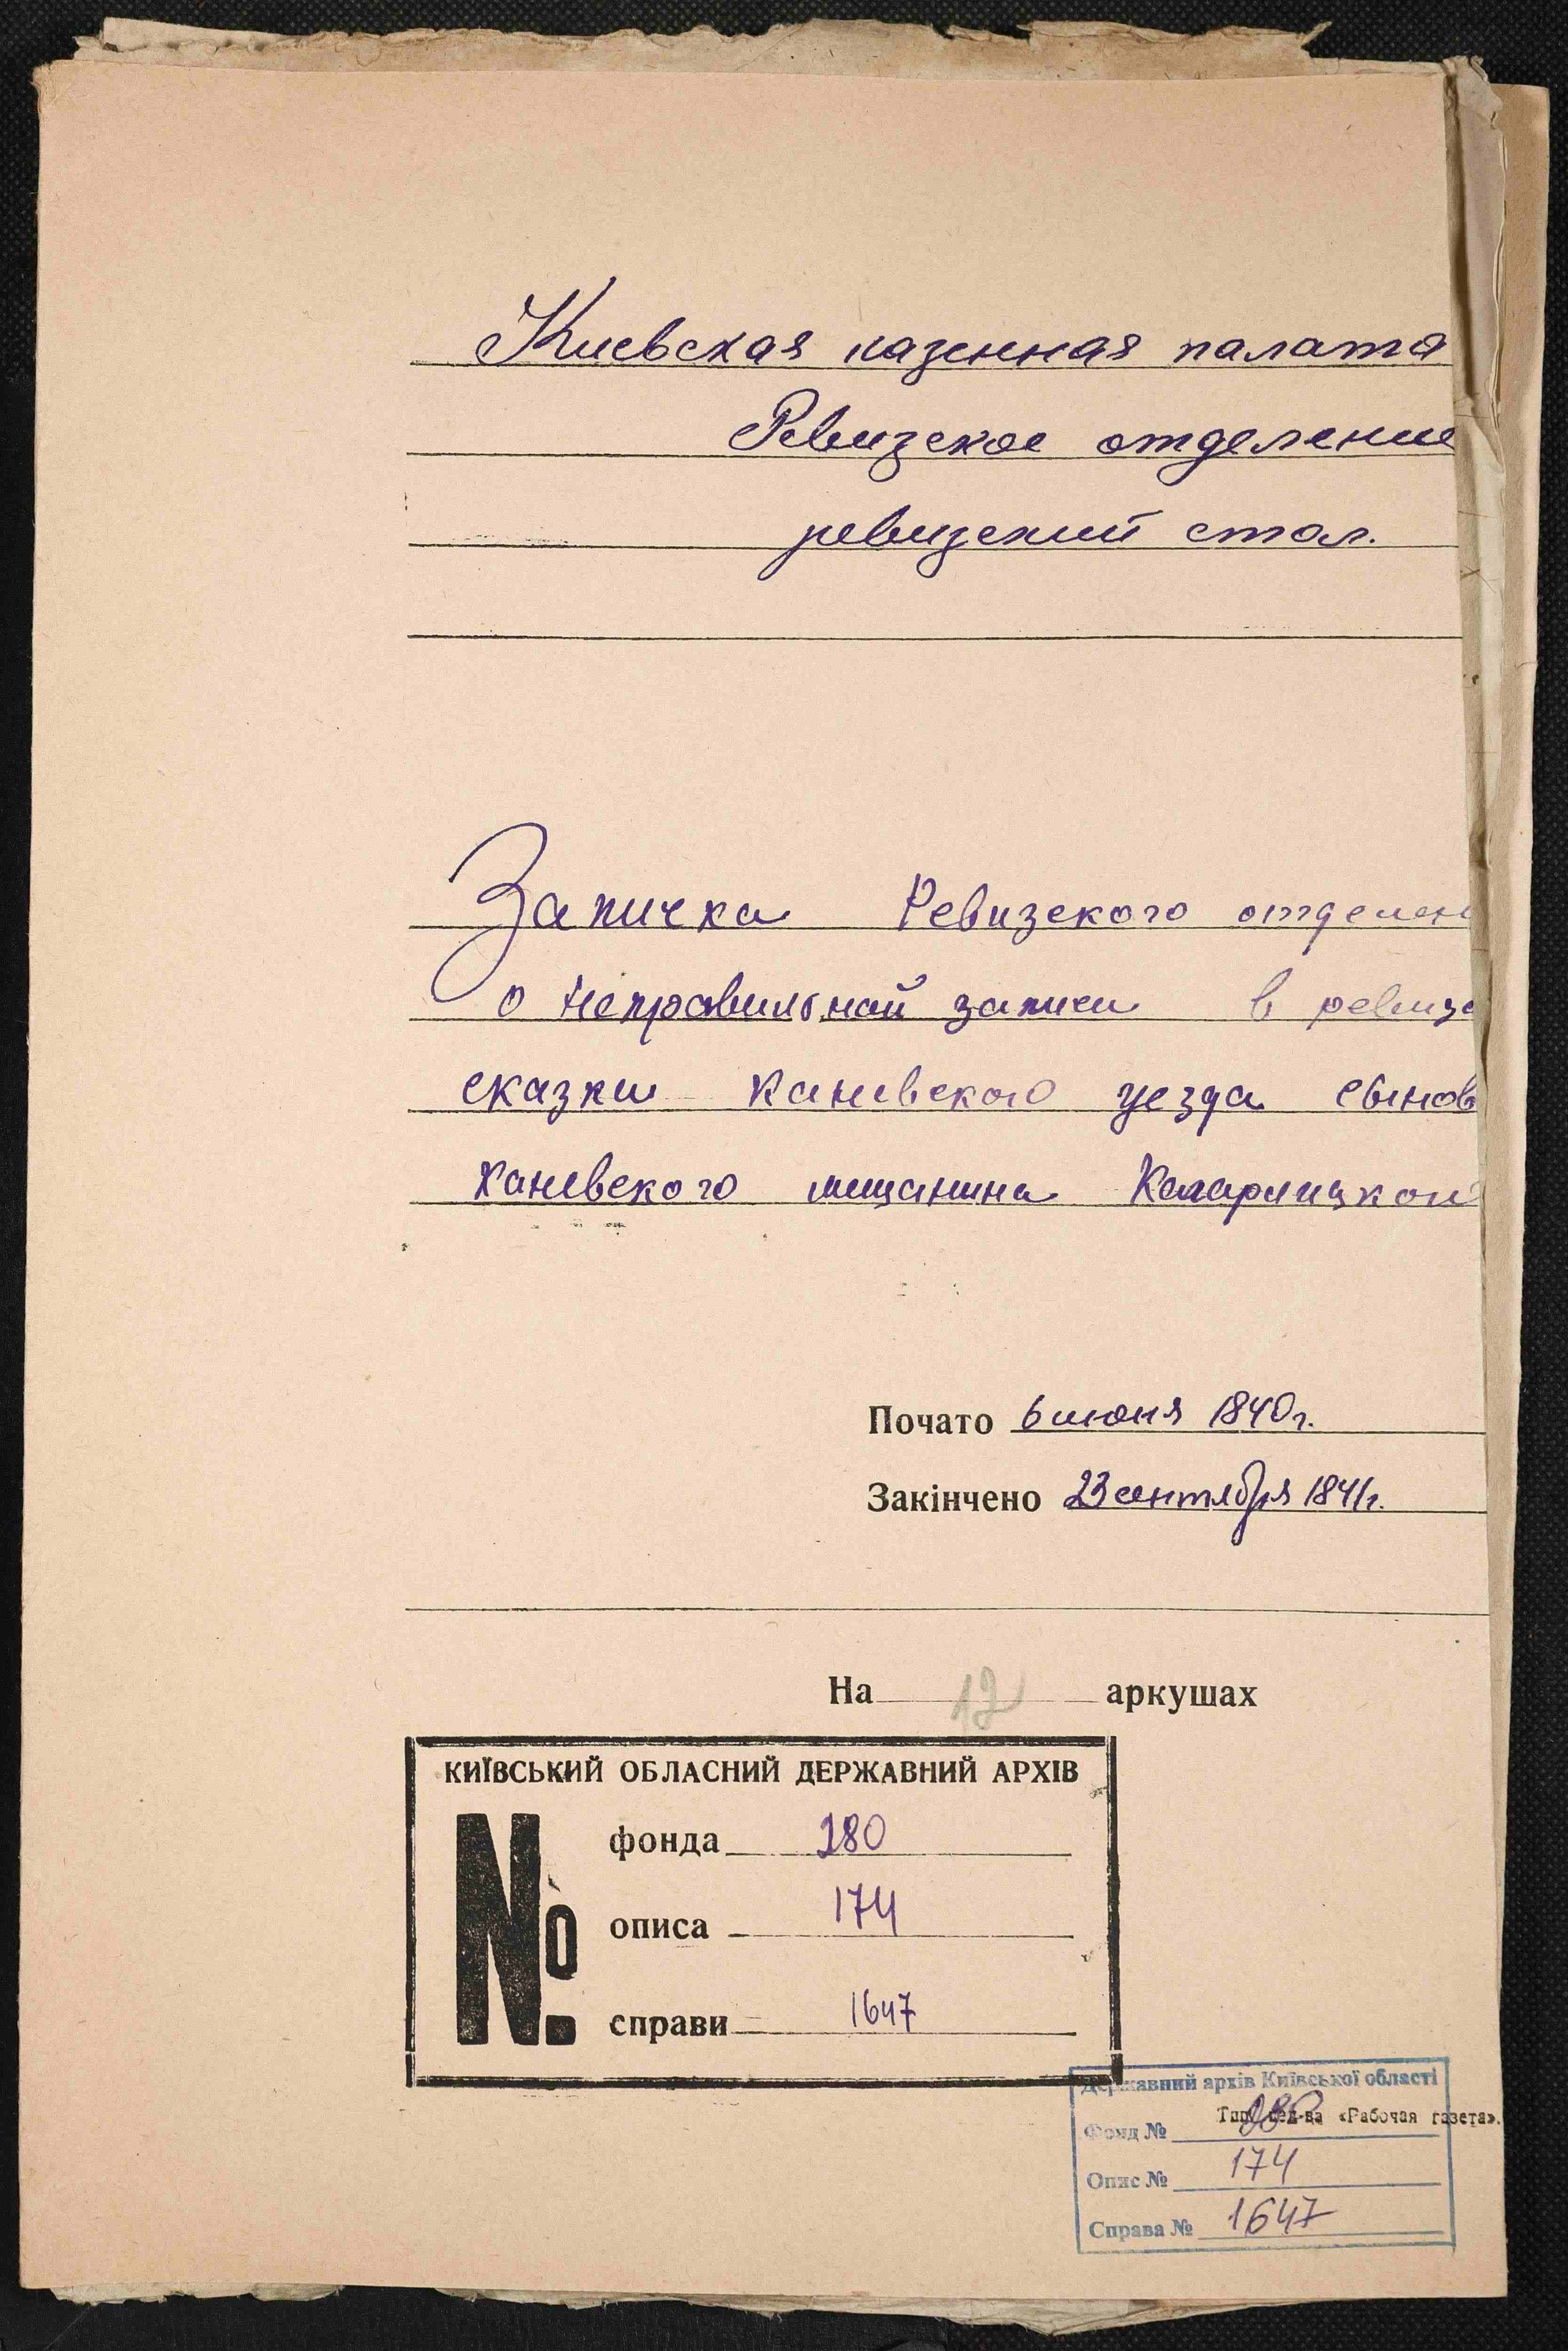 Киевская казенная палата
Ревизское отделение
ревизский стол.
Записка Ревизского отделен
о неправильной записи в ревизс
сказки Каневского уезда сынов
Каневского мещанина
Почато 6 июня 1840г.
Закінчено 23 сентября 1841г.
На 12 аркушах
КИЇВСЬКИЙ ОБЛАСНИЙ ДЕРЖАВНИЙ АРХІВ
№ фонда 280
описа 174
справи 1647
Державний архів Київської області
«Рабочая газета».
Фонд № 280
Опис № 174
Справа № 1647